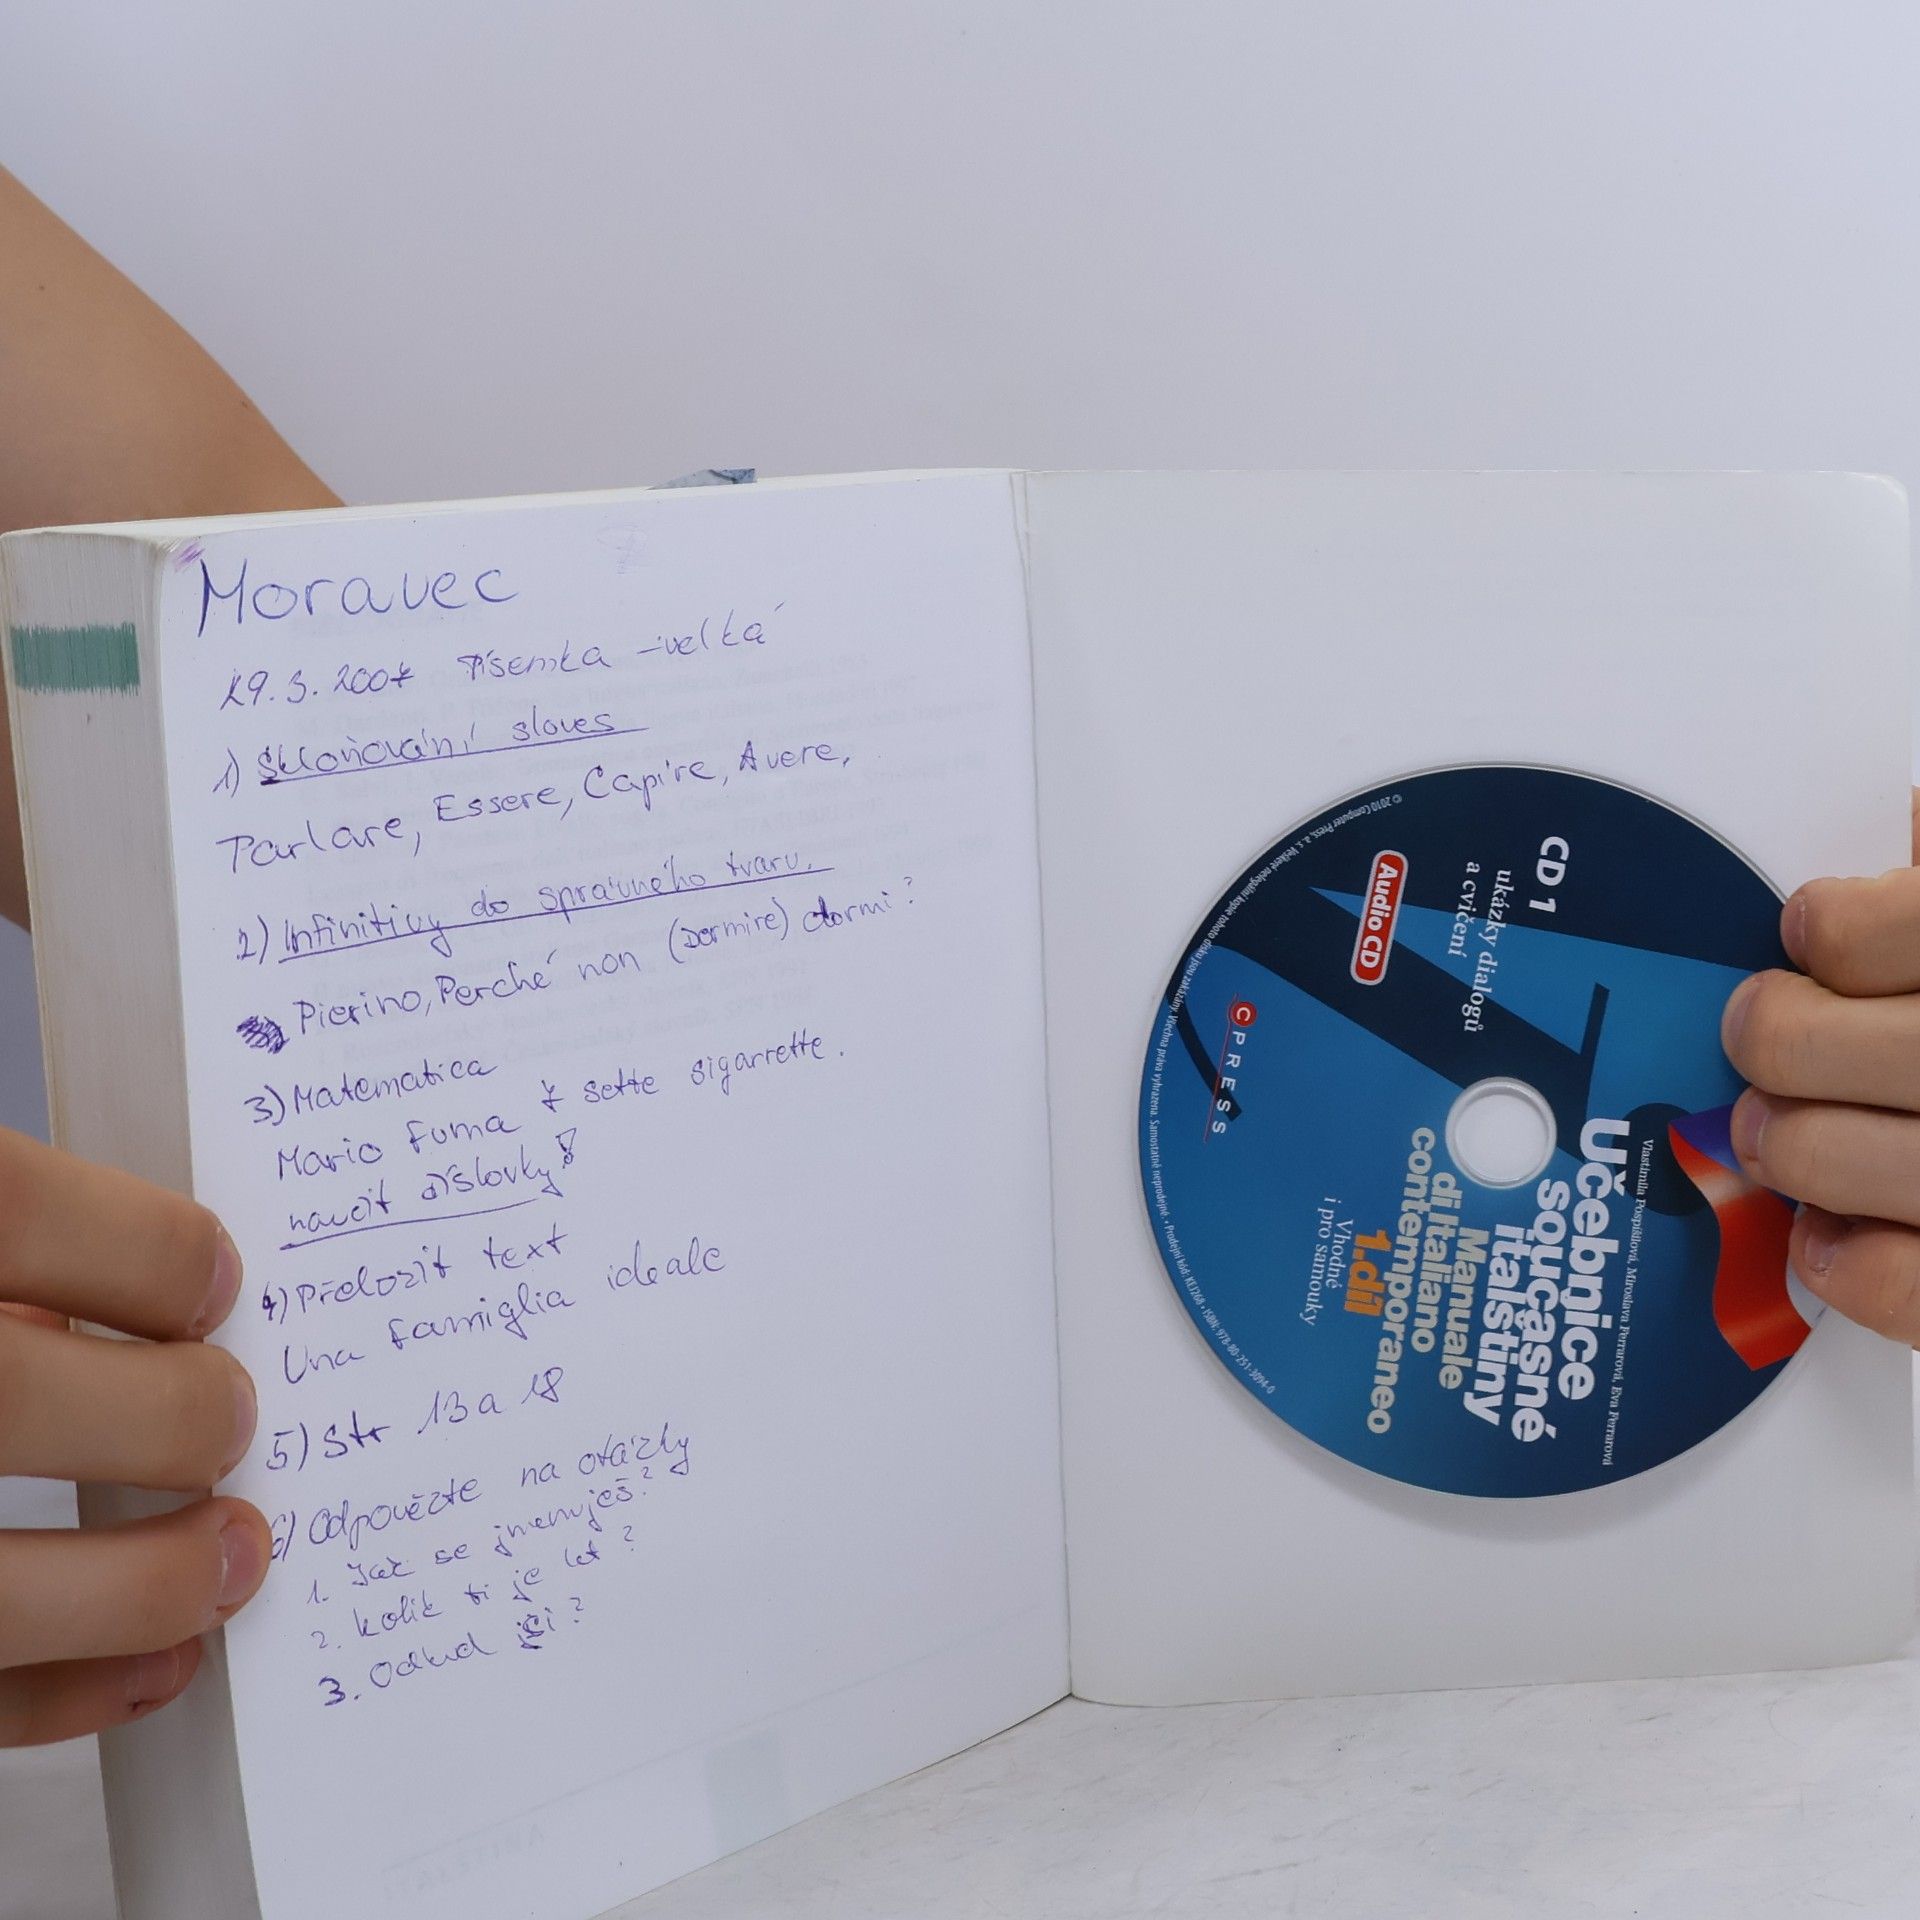 Moravec
29.3.2007 Písemka - velká
1) Skloňování sloves
Parlare, Essere, Capire, Avere,
2) Infinitivy do správného tvaru.
Pierino, Perché non (Dormire) dormi?
3) Matematica
Mario fuma 7 sette sigarrette.
naučit číslovky!
4) Přeložit text
Una famiglia ideale
5) Str 13 a 18
6) Odpovězte na otázky
1. Jak se jmenuješ?
2. kolik ti je let?
3. Odkud jsi?
CD 1
ukázky dialogů
a cvičení
Audio CD
CPRESS
Vlastimila Pospíšilová, Miroslava Ferrarová, Eva Ferrarová
Učebnice
současné
italštiny
Manuale
di Italiano
contemporaneo
1.díl
Vhodné
i pro samouky
© 2010 Computer Press, a. s. Veškeré nelegální kopie tohoto disku jsou zakázány. Všechna práva vyhrazena. Samostatně neprodejné • Prodejní kód: KE1268 • ISBN: 978-80-251-3094-0